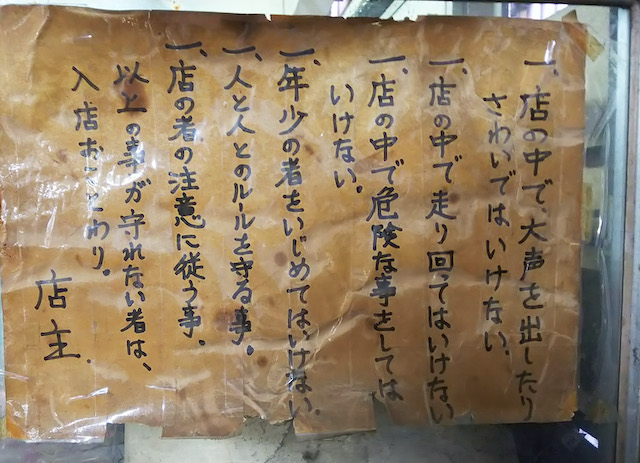 一、店の中で、大声を出したり
さわいではいけない。
一、店の中で走り回ってはいけない
一、店の中で危険な事をしては
いけない。
一、年少の者をいじめてはいけない。
一、人と人とのルールを守る事。
一、店の者の注意に従う事。
以上の事が守れない者は、
入店おことわり。
店主.